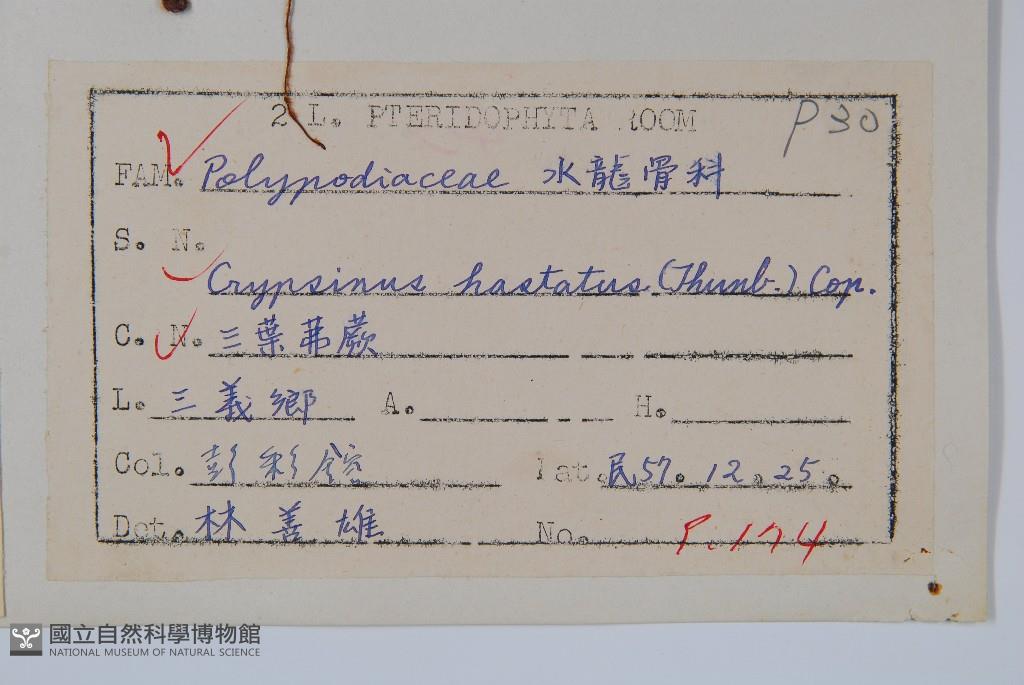 2 L. PTERIDOPHYTA ROOM P30
FAM. Polypodiaceae 水龍骨科
S. N.
Crypsinus hastatus (Thunb.) Cop.
C. N. 三葉茀蕨
L. 三義鄉 A. H.
Col. 彭彩 Dat. 民57.12.25.
Det. 林善雄 No. P.174
國立自然科學博物館
NATIONAL MUSEUM OF NATURAL SCIENCE